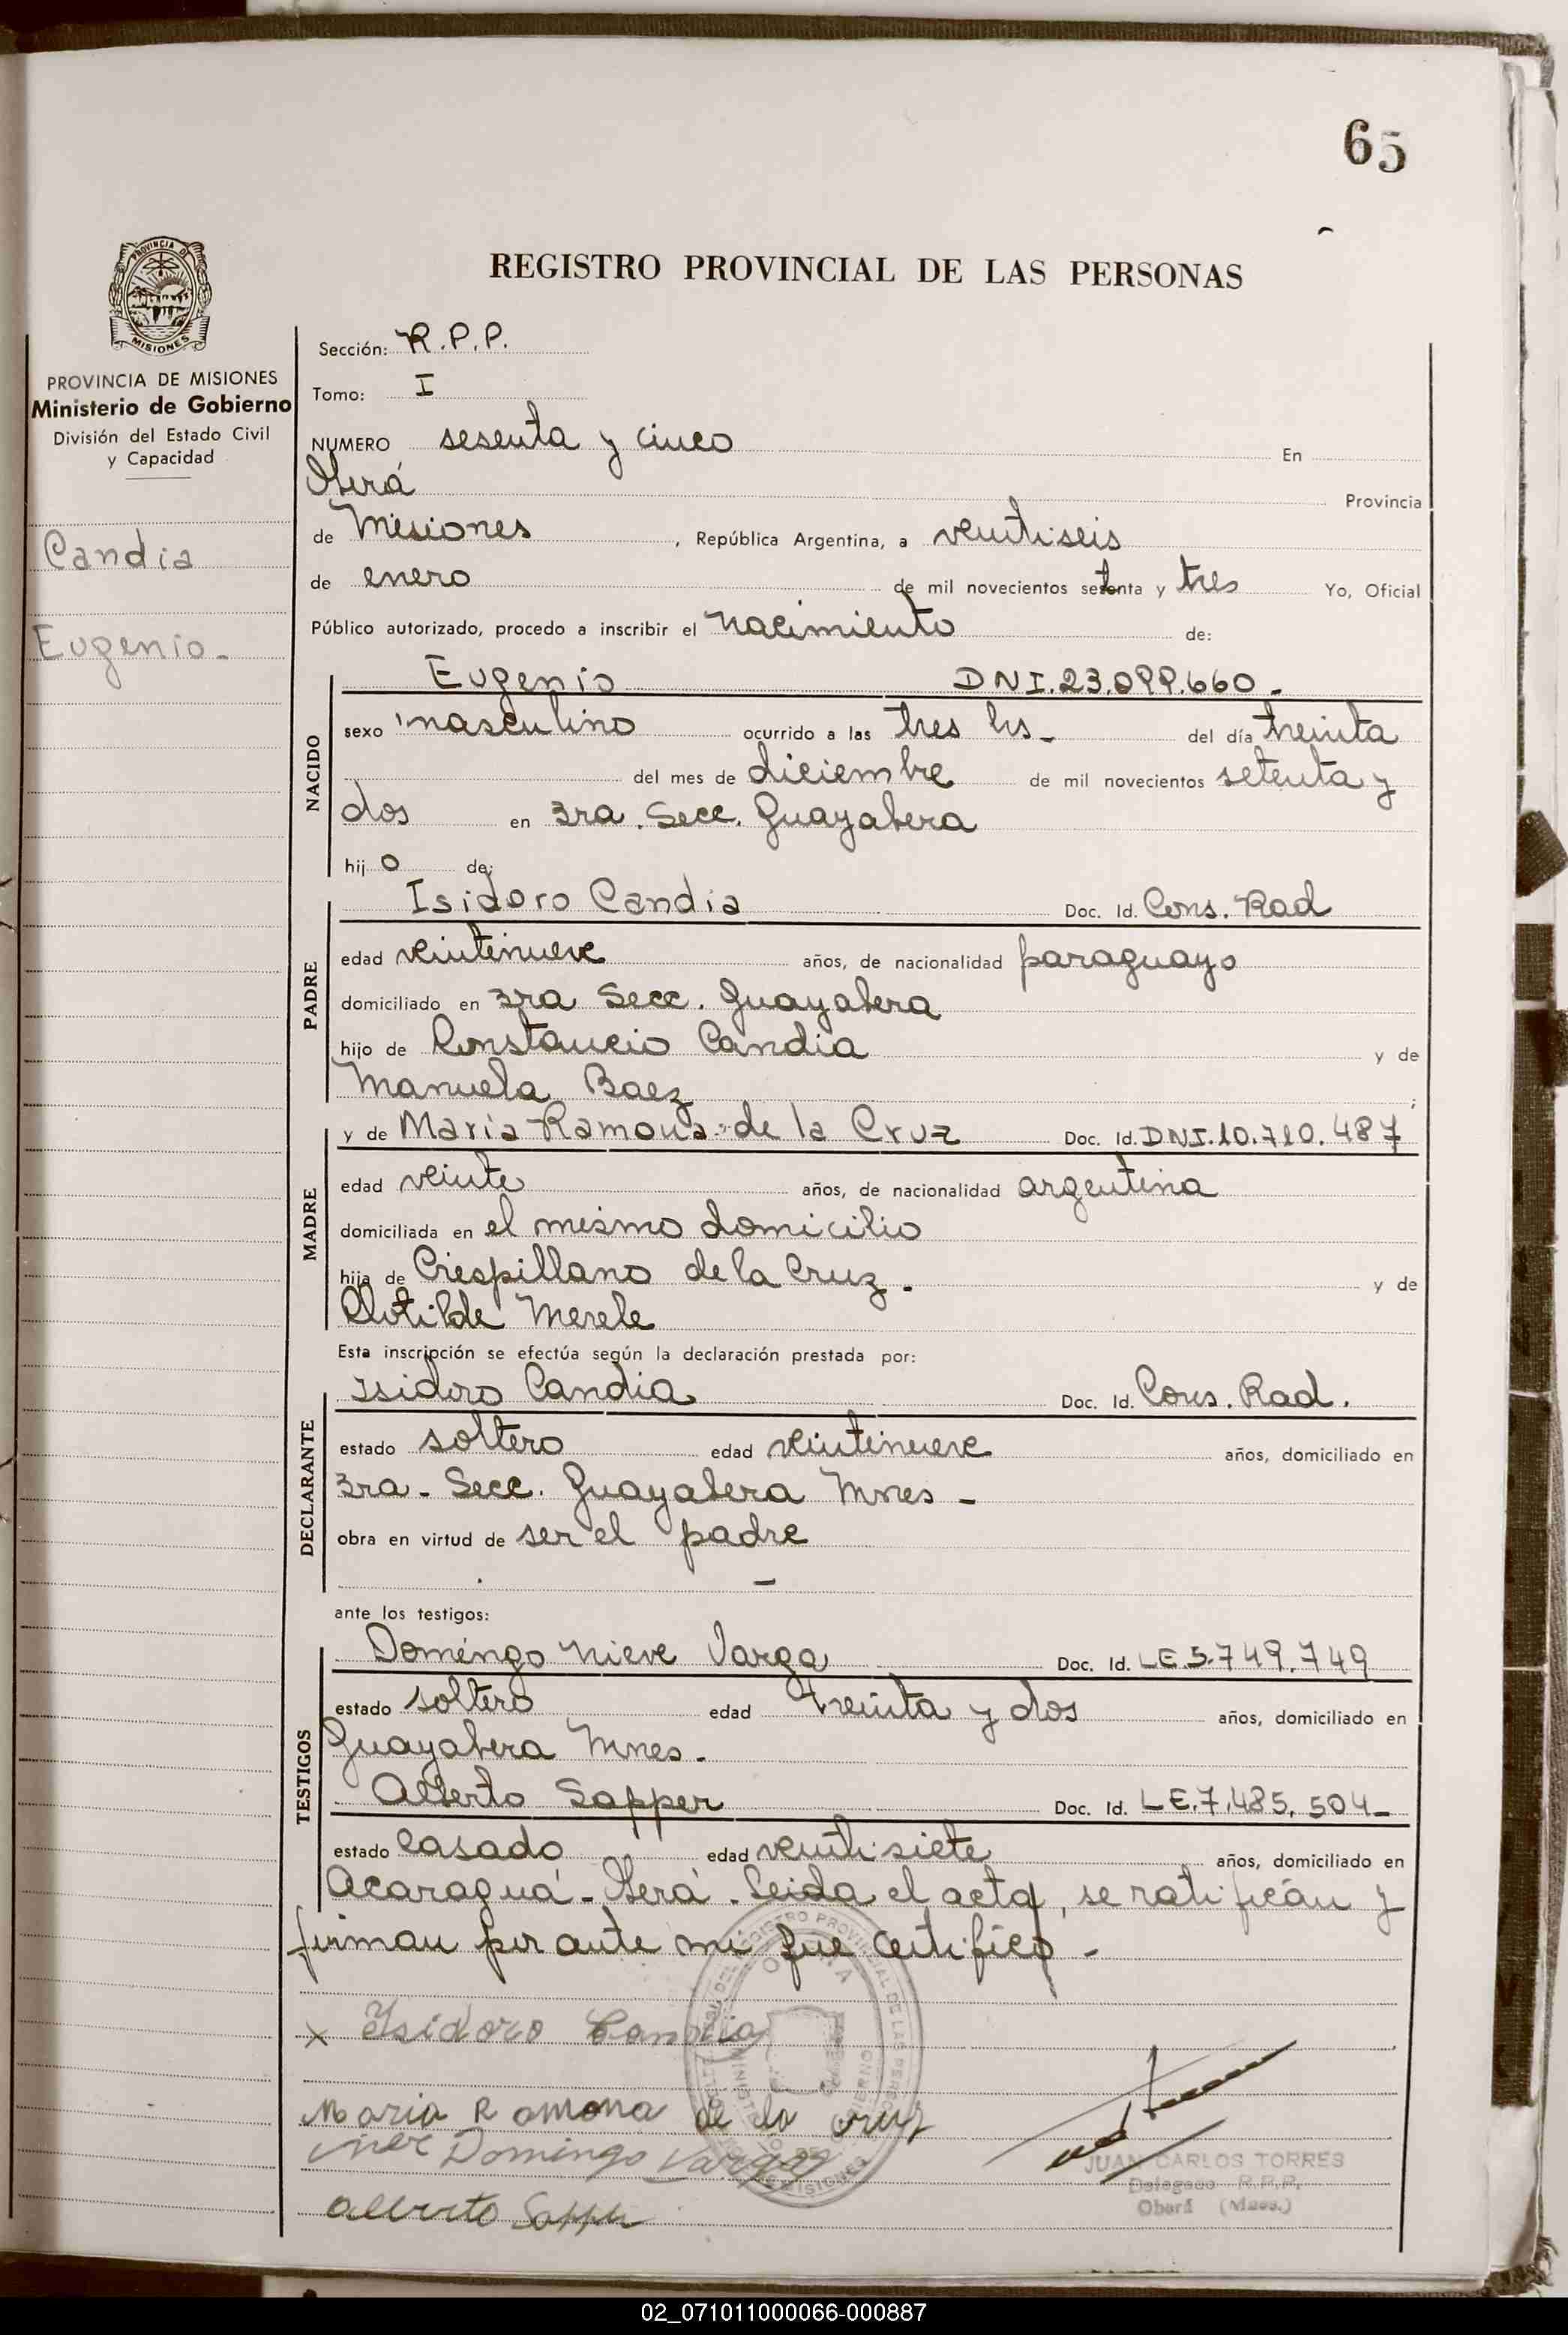 65
REGISTRO PROVINCIAL DE LAS PERSONAS
PROVINCIA DE MISIONES
PROVINCIA DE MISIONES
Ministerio de Gobierno
División del Estado Civil
y Capacidad
Candia
Eugenio-
Sección: R.P.P.
Tomo: I
NUMERO sesenta y cinco En
Oberá Provincia
de Misiones, República Argentina, a veintiseis
de enero de mil novecientos setenta y tres Yo, Oficial
Público autorizado, procedo a inscribir el nacimiento de:
NACIDO
Eugenio DNI.23.099.660-
sexo masculino ocurrido a las tres hs- del día treinta
del mes de diciembre de mil novecientos setenta y
dos en 3ra. Secc. Guayabera
hijo de:
PADRE
Isidoro Candia Doc. Id. Cons. Rad
edad veintinueve años, de nacionalidad paraguayo
domiciliado en 3ra Secc. Guayabera
hijo de Constancio Candia y de
Manuela Baez;
MADRE
y de Maria Ramona de la Cruz Doc. Id. DNI.10.710.487
edad veinte años, de nacionalidad argentina
domiciliada en el mismo domicilio
hija de Crespillano de la Cruz. y de
Clotilde Merele
Esta inscripción se efectúa según la declaración prestada por:
DECLARANTE
Isidoro Candia Doc. Id. Cons. Rad.
estado soltero edad veintinueve años, domiciliado en
3ra- Secc. Guayabera Mnes-
obra en virtud de ser el padre
ante los testigos:
TESTIGOS
Domingo Nieve Varga Doc. Id. LE.5.749.749
estado soltero edad treinta y dos años, domiciliado en
Guayabera Mnes.
Alberto Sapper Doc. Id. LE.7.485.504-
estado casado edad veintisiete años, domiciliado en
Acaraguá- Oberá. Leida el acta, se ratifican y
firman por ante mi que certifico-
x Isidoro Candia
Maria Ramona de la cruz
Domingo Vargas
Alberto Sapper
JUAN CARLOS TORRES
Delegado R.P.P.
Oberá (Mnes.)
02_071011000066-000887